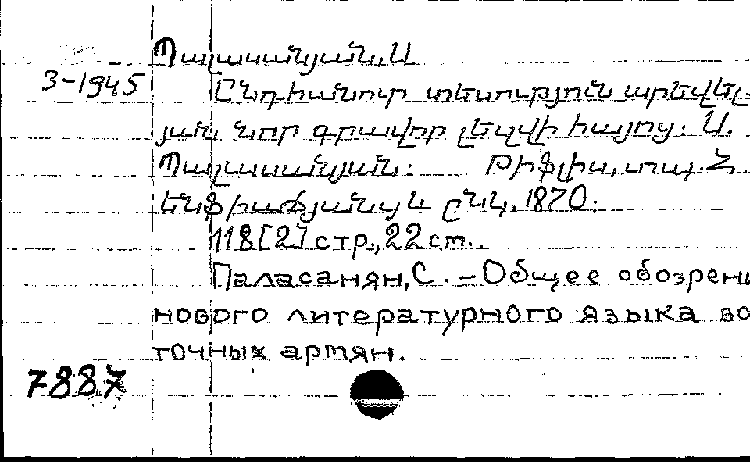 Պալասանյան, Ս
3-1945
Ընդհանուր տեսություն արեվել
յան նոր գրավոր լեզվի հայոց. Ս.
Պալասանյան. Թիֆլիս, տպ. Հ
Ենֆիաճյանցի և ընկ., 1870.
118[2] стр., 22 см.
Паласанян, С. – Общее обозрени
нового литературного языка во
точных армян.
7887